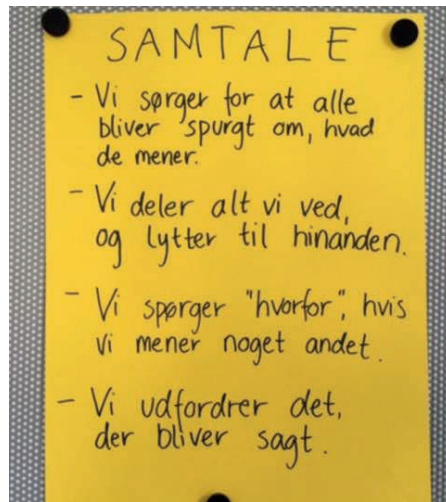 SAMTALE
- Vi sørger for at alle
bliver spurgt om, hvad
de mener.
- Vi deler alt vi ved,
og lytter til hinanden.
- Vi spørger "hvorfor", hvis
vi mener noget andet.
- Vi udfordrer det,
der bliver sagt.